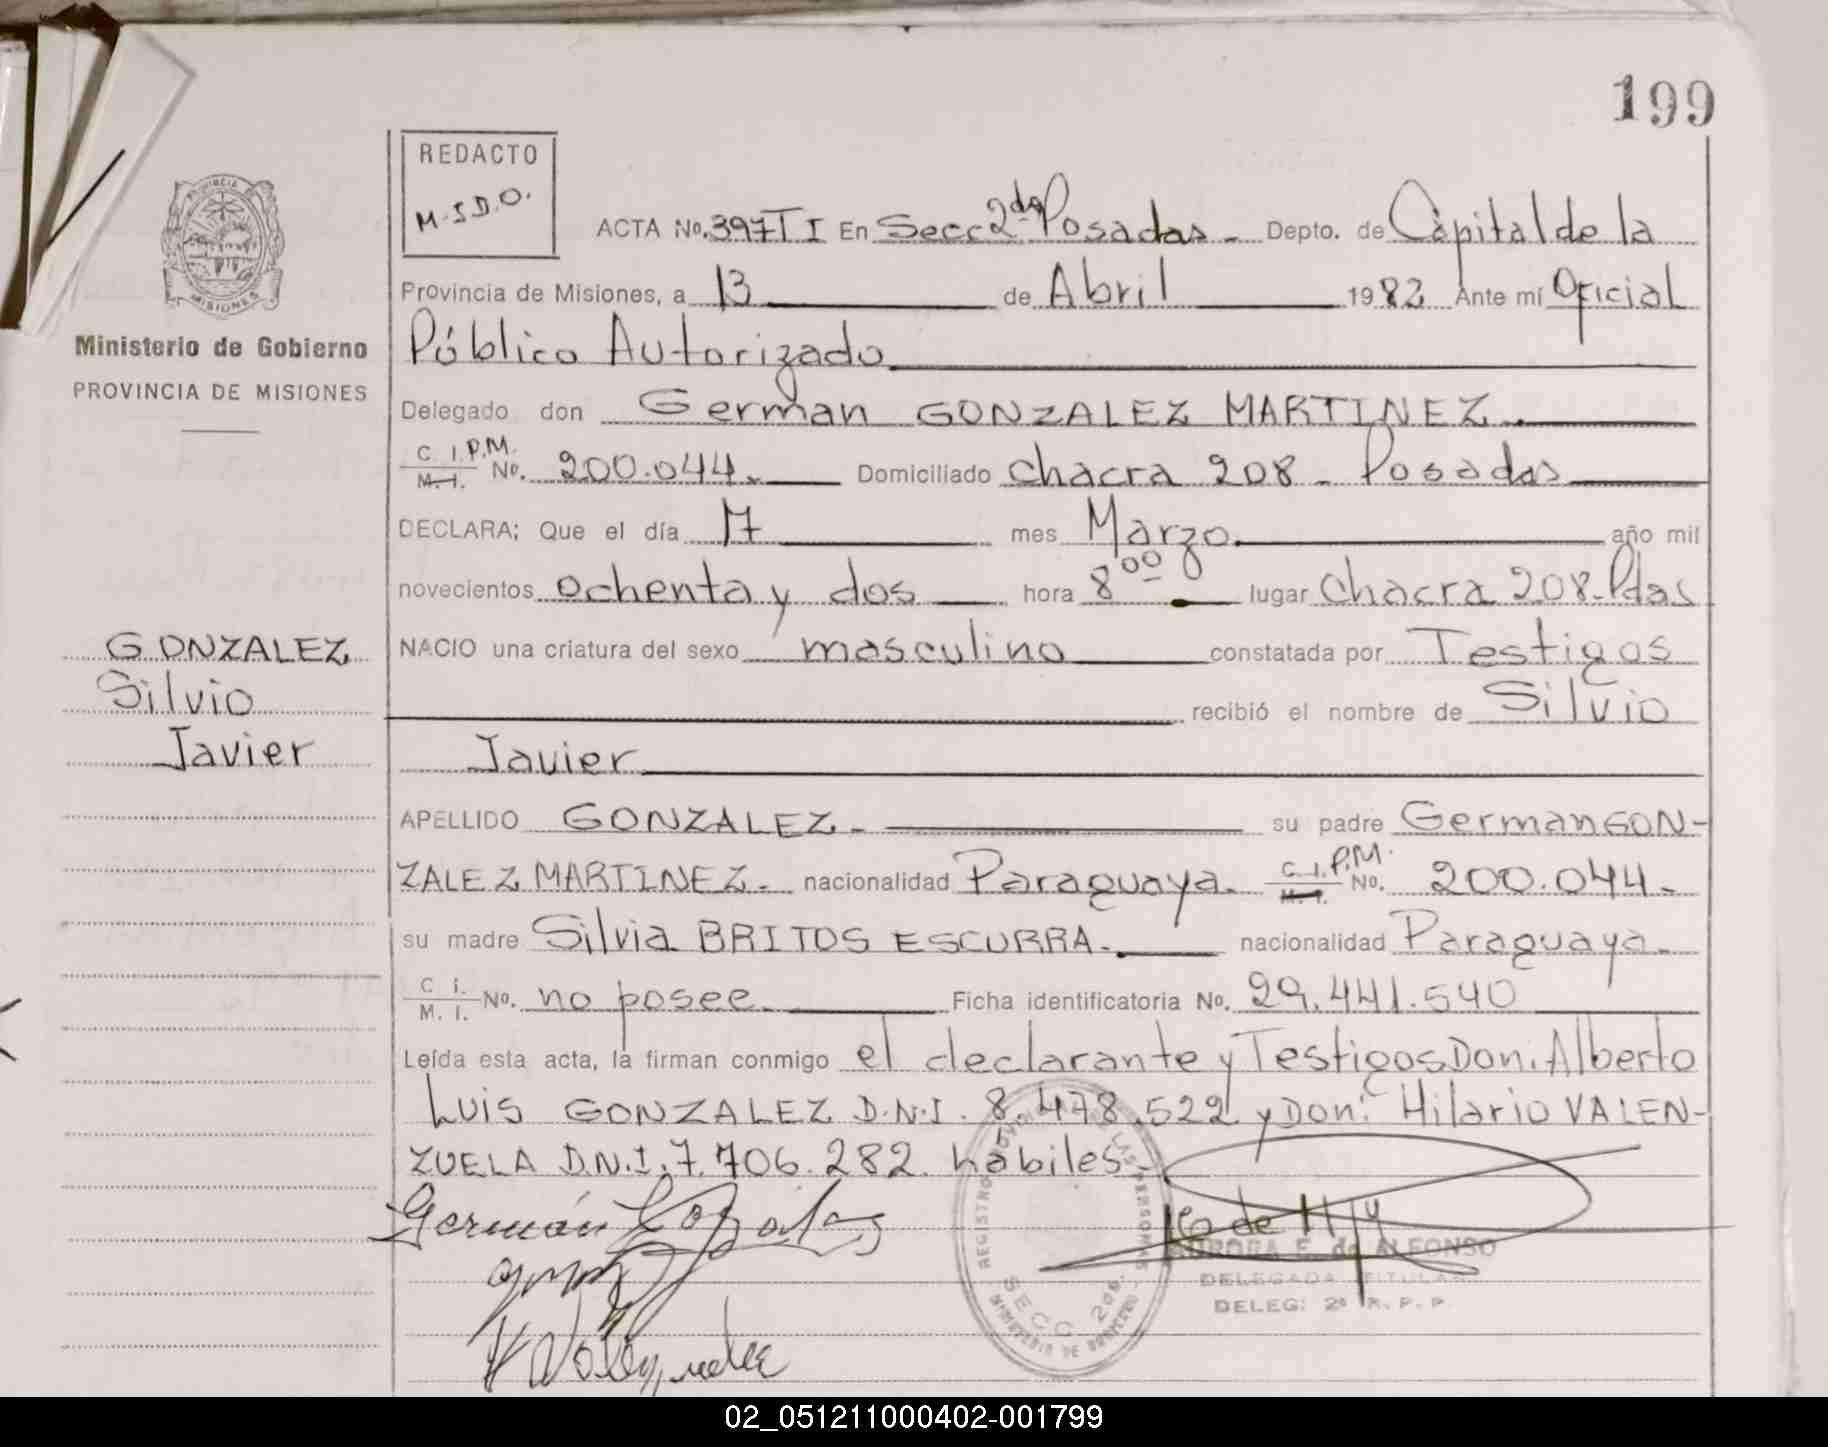 199
REDACTO
M.S.D.O.
ACTA No. 397 T I En Secc 2da Posadas - Depto. de Capital de la
Provincia de Misiones, a 13 de Abril 1982 Ante mí Oficial
Público Autorizado
Ministerio de Gobierno
PROVINCIA DE MISIONES
Delegado don German GONZALEZ MARTINEZ.
C. I. P.M. No. 200.044. Domiciliado Chacra 208 - Posadas
M. I.
DECLARA; Que el día 17 mes Marzo. año mil
novecientos ochenta y dos hora 8 00 lugar Chacra 208-Pdas
NACIO una criatura del sexo masculino constatada por Testigos
recibió el nombre de Silvio
Javier
GONZALEZ
Silvio
Javier
APELLIDO GONZALEZ.- su padre German GON-
ZALEZ MARTINEZ. nacionalidad Paraguaya. C. I. P.M. No. 200.044.
M. I.
su madre Silvia BRITOS ESCURRA. nacionalidad Paraguaya.
C. i. No. no posee. Ficha identificatoria No. 29.441.540
M. I.
Leída esta acta, la firman conmigo el declarante y Testigos Don: Alberto
Luis GONZALEZ D.N.I. 8.478.522 y Don: Hilario VALEN-
ZUELA D.N.I. 7.706.282. habiles.-
Germán González
H Valenzuela
REGISTRO PROVINCIAL DE LAS PERSONAS
SECC. 2da.
MINISTERIO DE GOBIERNO
AURORA E. de ALFONSO
DELEGADA TITULAR
DELEG: 2a R. P. P.
02_051211000402-001799